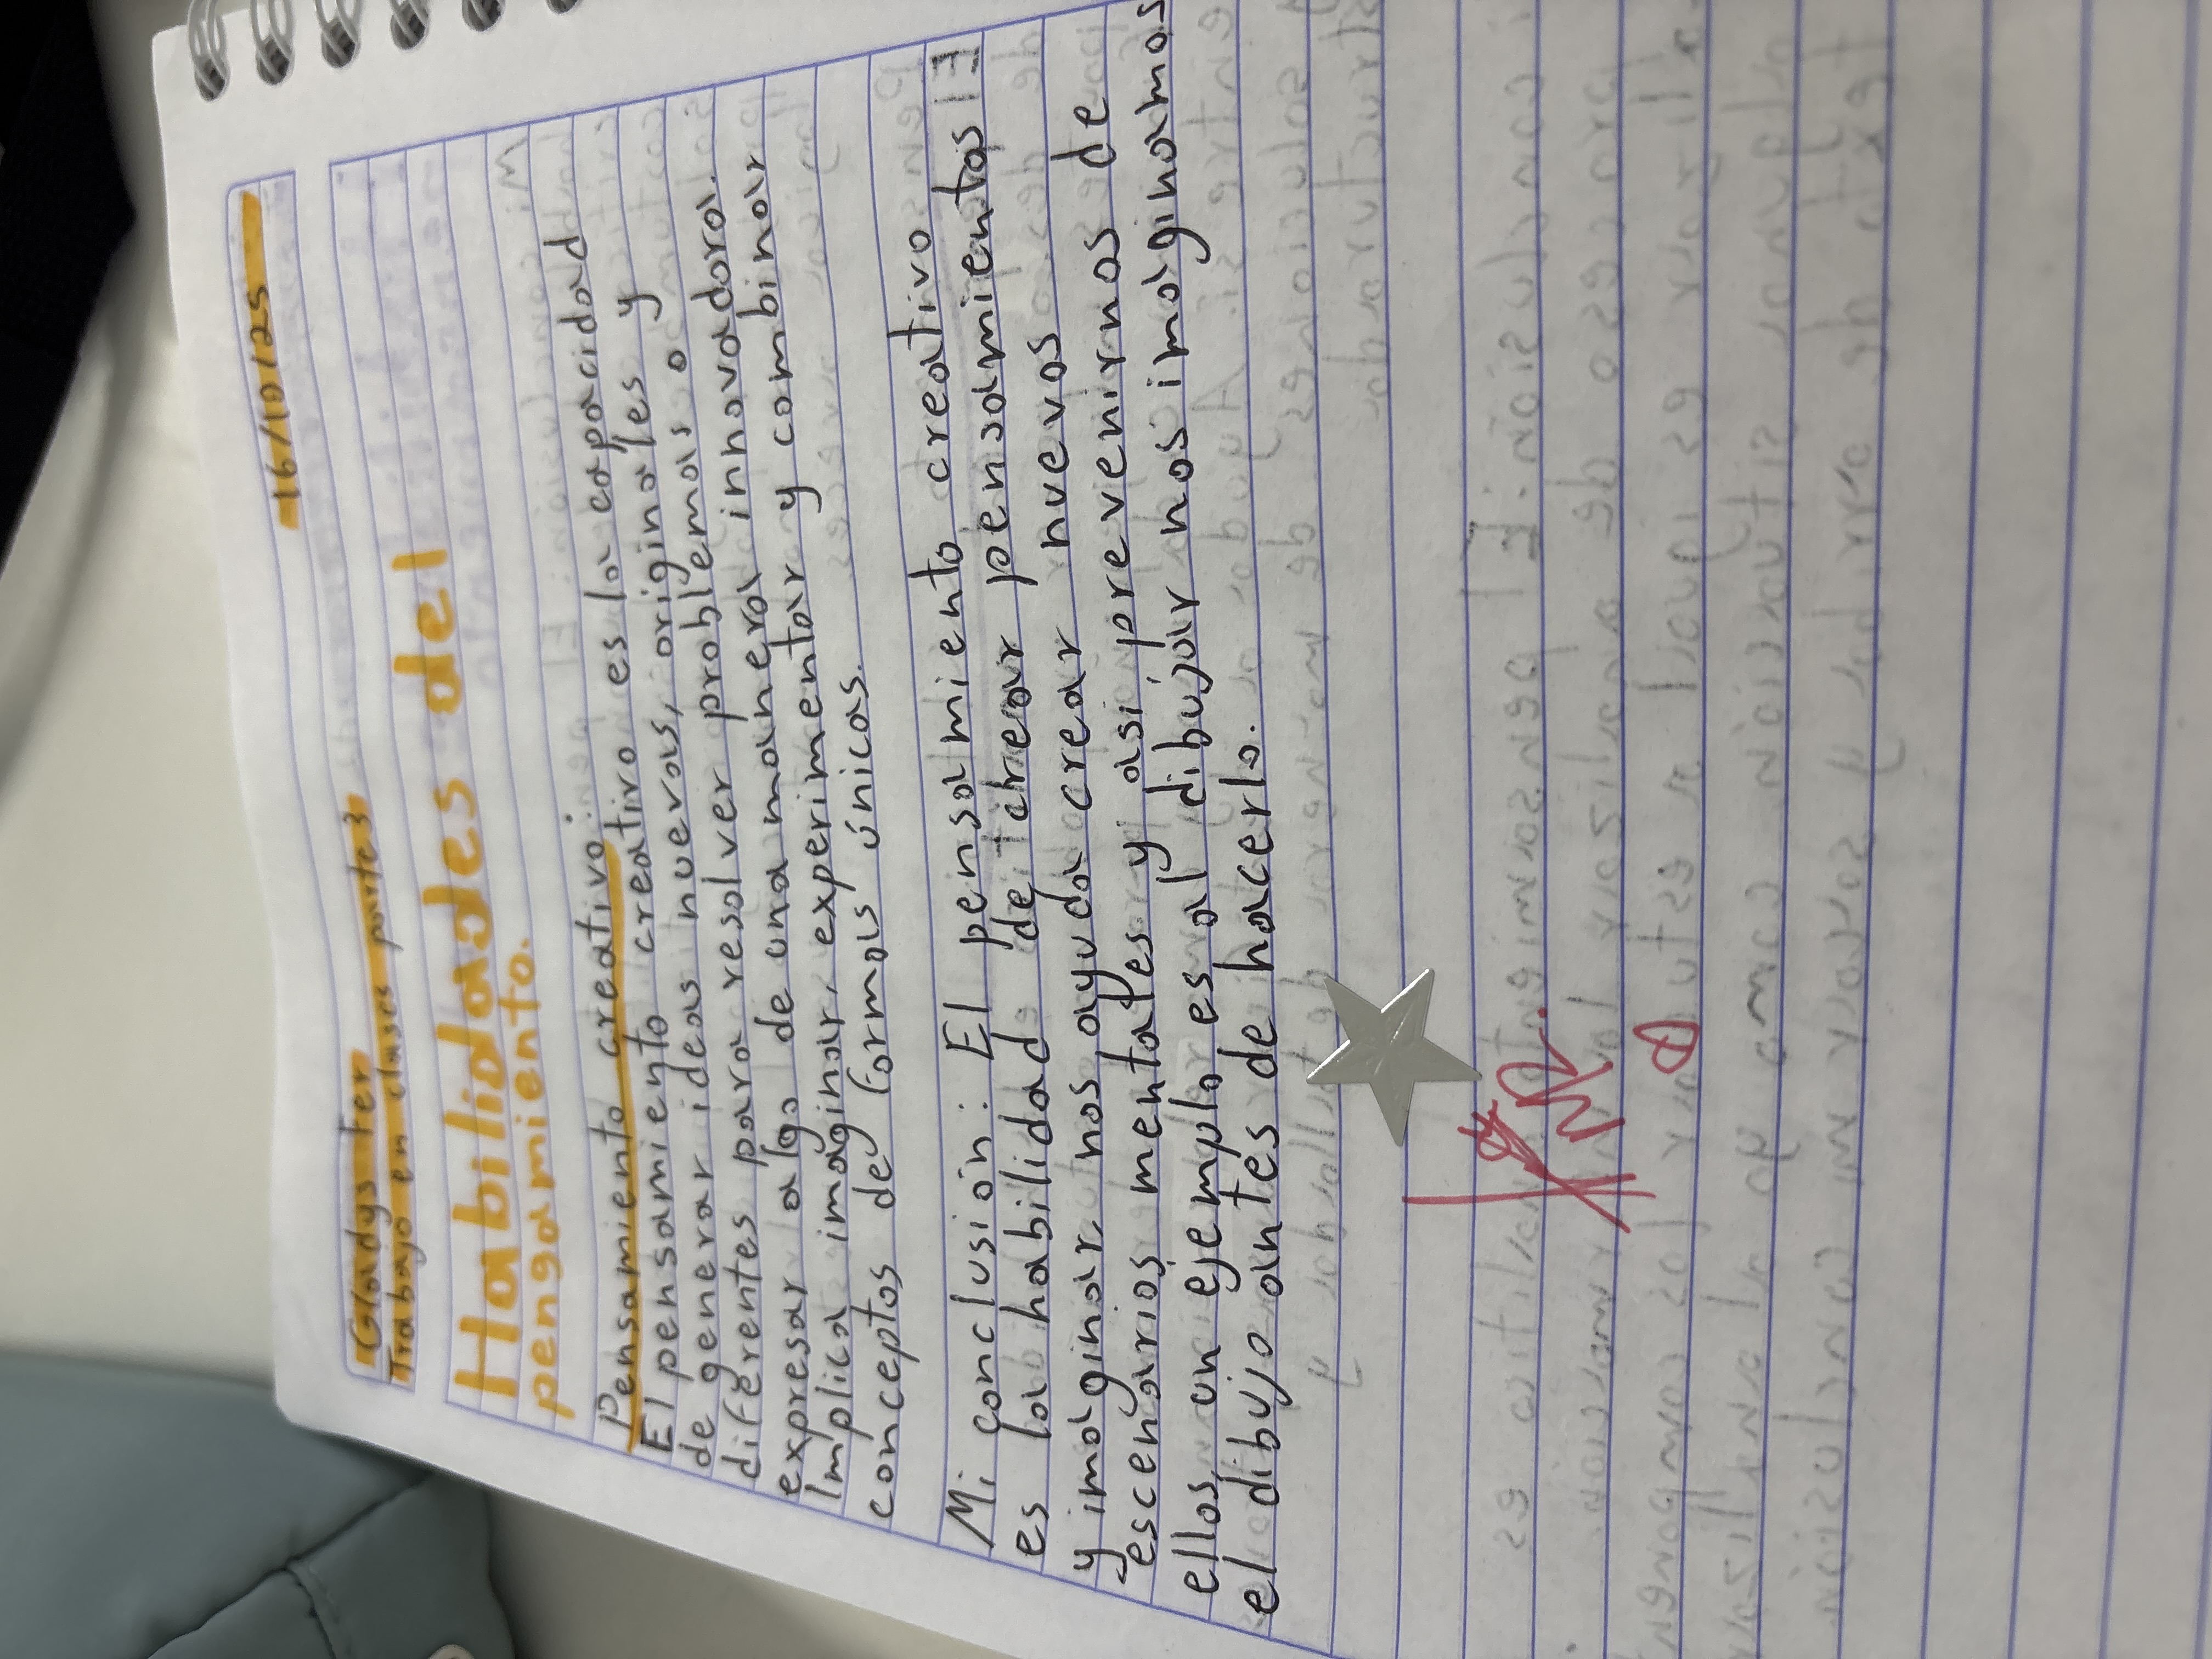 16/10/25
Gladys ter
Trabajo en clases parte 3
Habilidades del
pensamiento.
Pensamiento creativo:
El pensamiento creativo es la capacidad
de generar ideas nuevas, originales y
diferentes para resolver problemas o
expresar algo de una manera innovadora.
Implica imaginar, experimentar y combinar
conceptos de formas únicas.
Mi conclusión: El pensamiento creativo
es la habilidad de crear pensamientos
y imaginar, nos ayuda crear nuevos
escenarios mentales y asi prevenirnos de
ellos, un ejemplo es al dibujar nos imaginamos
el dibujo antes de hacerlo.